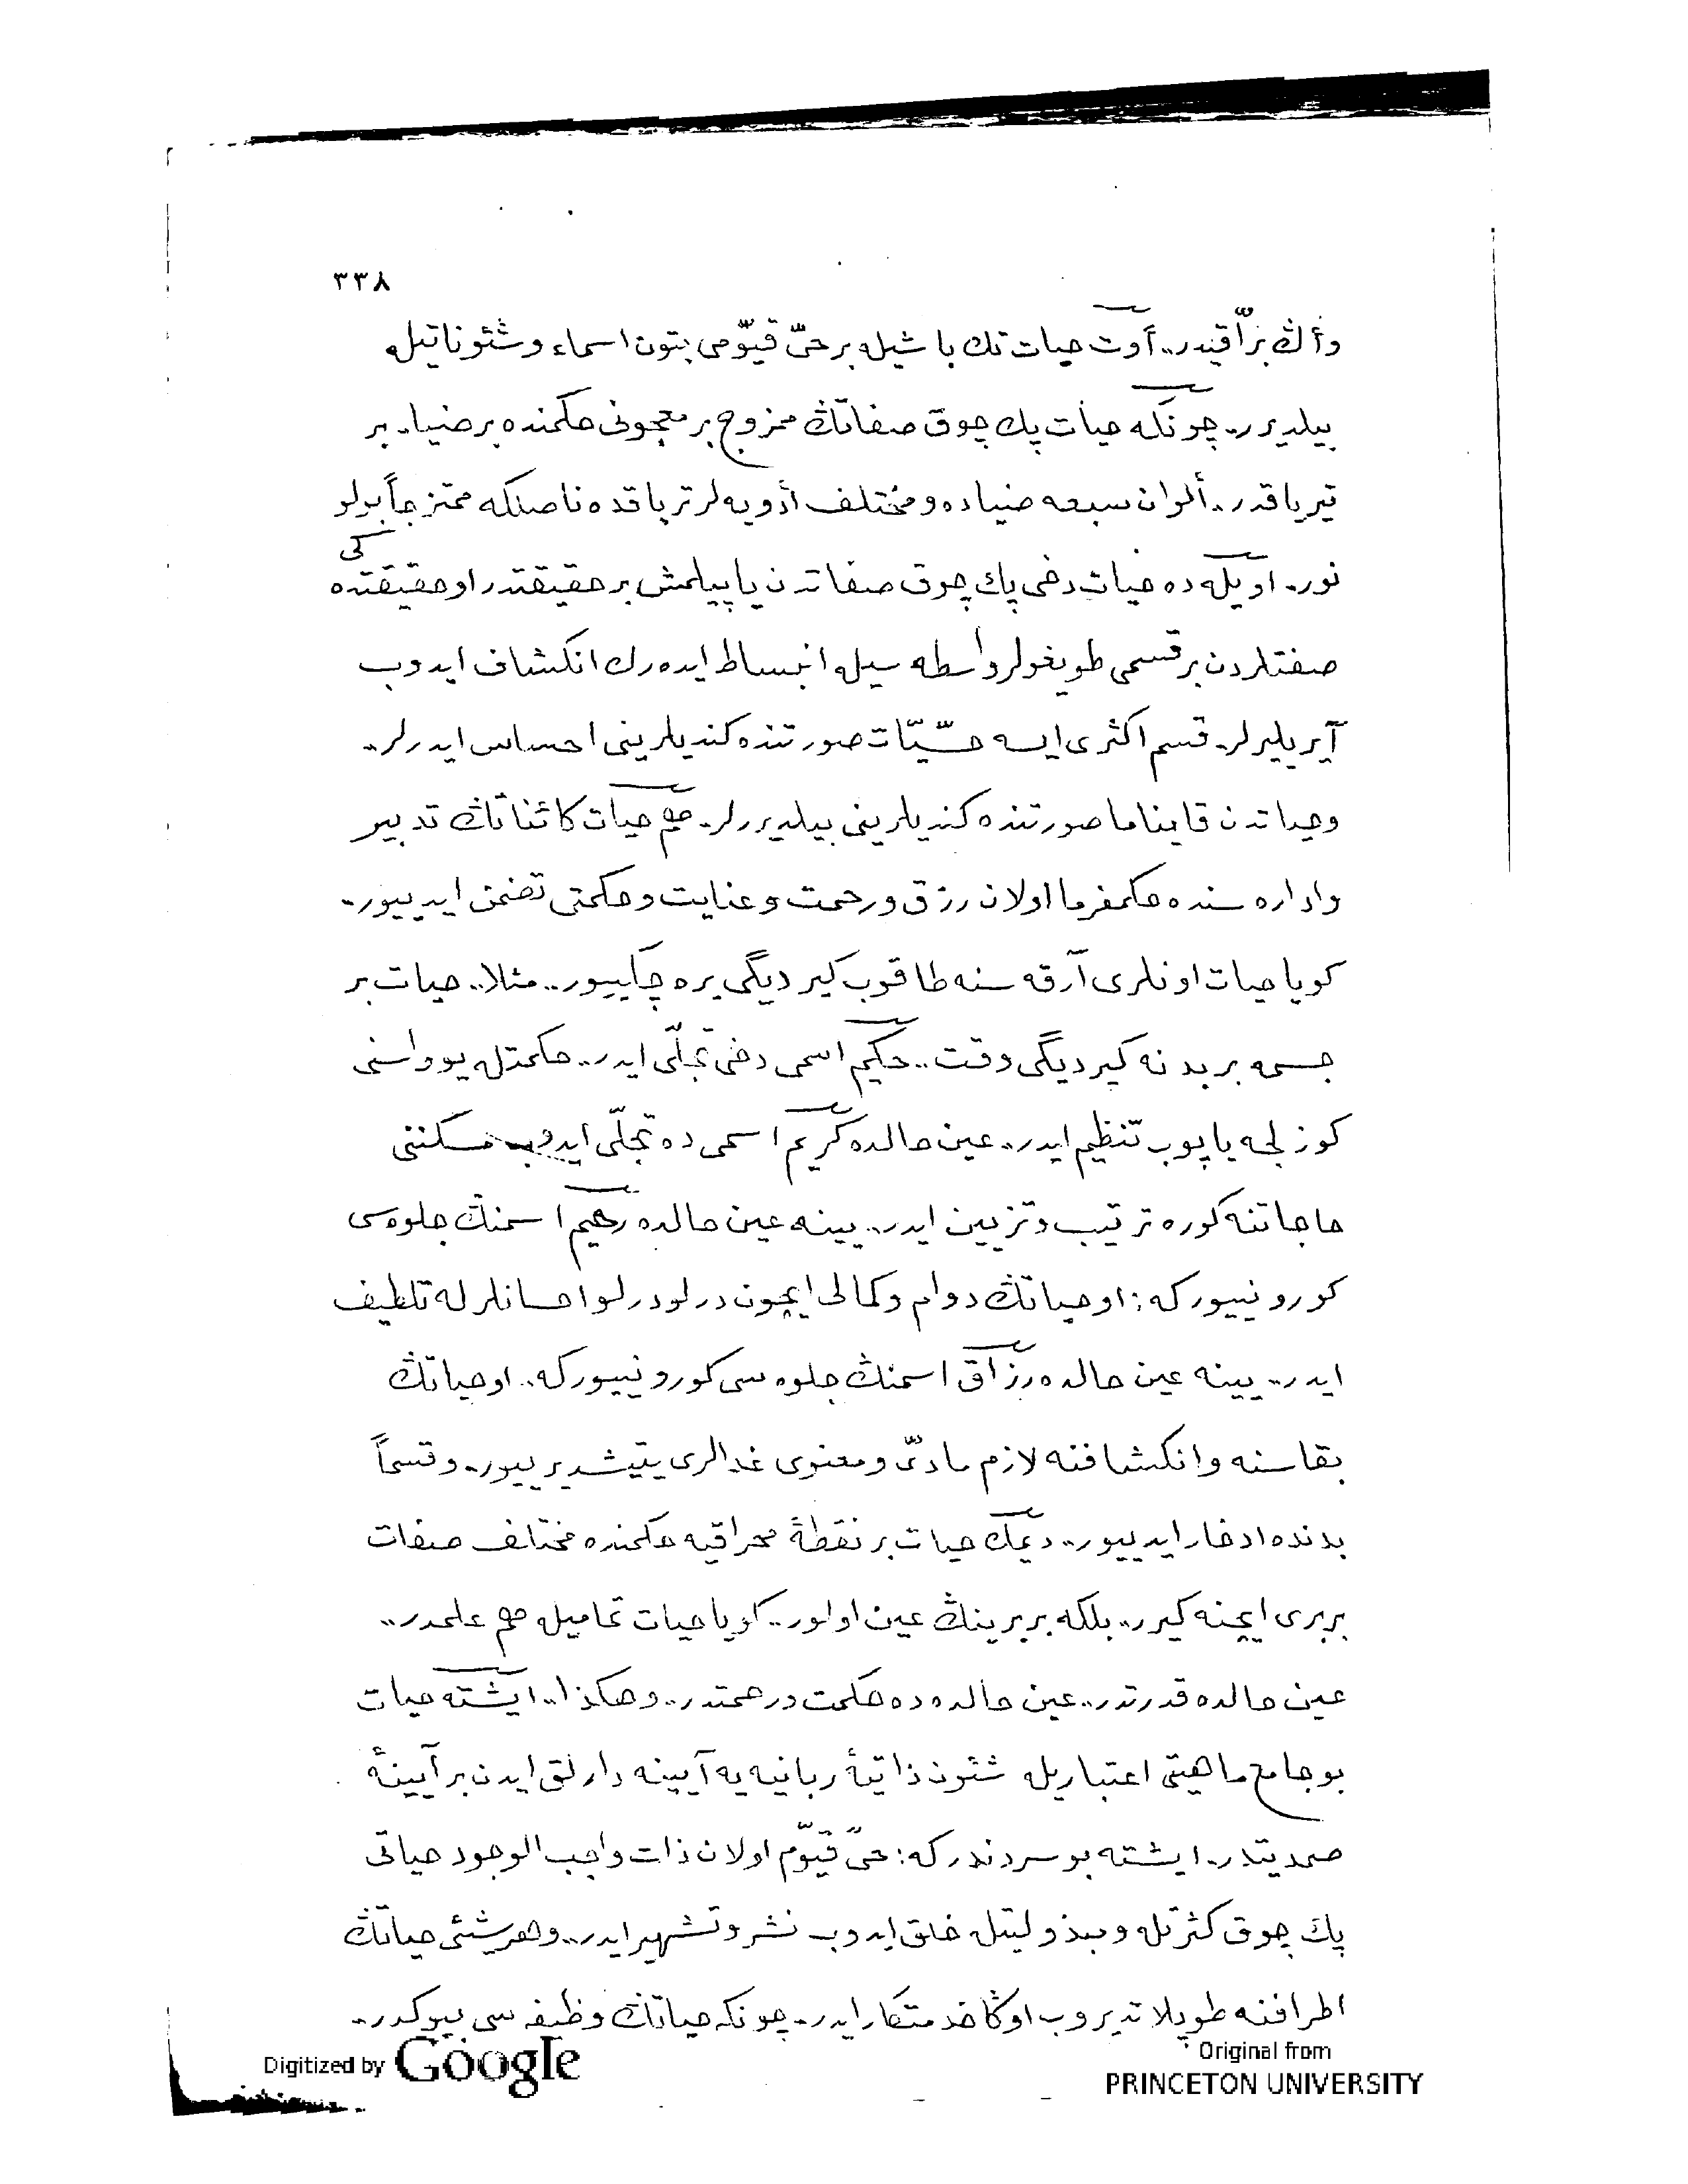 ٣٣٨
وأڭ برّاقيدر.. أوت حيات تك باشيله بر حىّ قيّومى بتون اسماء و شئوناتيله
بيلديرر.. چونكه حيات پك چوق صفاتڭ ممزوج بر معجونى حكمنده بر ضيا.. بر
تيرياقدر.. ألوان سبعه ضياده و مختلف أدويه لر ترياقده ناصلكه ممتزجاً بولو
نور.. اويله ده حيات دخى پك چوق صفاتدن ياپيلمش بر حقيقتدر او حقيقتده كى
صفتلردن بر قسمى طويغولر واسطه سيله انبساط ايده رك انكشاف ايدوب
آيريليرلر.. قسم اكثرى ايسه حسّيّات صورتنده كنديلرينى احساس ايدرلر..
وحياتدن قايناما صورتنده كنديلرينى بيلديررلر.. هم حيات كائناتڭ تدبير
واداره سنده حكمفرما اولان رزق ورحمت وعنايت وحكمتى تضمن ايدييور..
كويا حيات اونلرى آرقه سنه طاقوب كيرديگى يره چكييور.. مثلا.. حيات بر
جسمه بر بدنه كيرديگى وقت.. حكيم اسمى دخى تجلّى ايدر.. حكمتله يوواسنى
كوزلجه ياپوب تنظيم ايدر.. عين حالده كريم اسمى ده تجلّى ايدوب مسكننى
حاجاتنه كوره ترتيب وتزيين ايدر.. يينه عين حالده رحيم اسمنڭ جلوه سى
كورونييور كه: او حياتڭ دوام وكمالى ايچون درلو درلو احسانلرله تلطيف
ايدر.. يينه عين حالده رزاق اسمنڭ جلوه سى كورونييور كه.. او حياتڭ
بقاسنه وانكشافنه لازم مادىّ ومعنوى غدالرى يتيشديرييور.. وقسماً
بدنده ادخار ايدييور.. ديمك حيات بر نقطهٔ محراقيه حكمنده مختلف صفات
بربرى ايچنه كيرر.. بلكه بربرينڭ عين اولور.. كويا حيات تماميله هم علمدر..
عين حالده قدرتدر.. عين حالده ده حكمت ورحمتدر.. وهكذا.. ايشته حيات
بو جامع ماهيتى اعتباريله شئون ذاتيهٔ ربانيه يه آيينه دارلق ايدن بر آيينهٔ
صمديتدر.. ايشته بو سردندر كه: حىّ قيّوم اولان ذات واجب الوجود حياتى
پك چوق كثرتله ومبذوليتله خلق ايدوب نشر وتشهير ايدر.. وهر شيئى حياتڭ
اطرافنه طوپلاتديروب اوڭا خدمتكار ايدر.. چونكه حياتڭ وظيفه سى بيوكدر..
Digitized by Google
Original from
PRINCETON UNIVERSITY